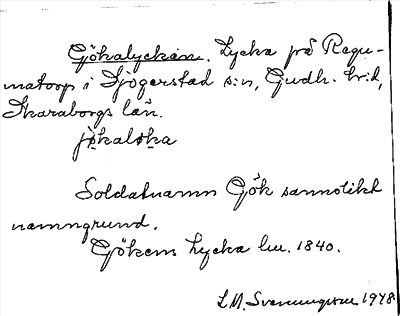 Gökalyckan. Lycka på Regu-
matorp i Sjogerstad s:n, Gudh. hd,
Skaraborgs län.
jökaloka
Soldatnamn Gök sannolikt
namngrund.
Gökens Lycka lm. 1840.
L M. Svenungsson 1948